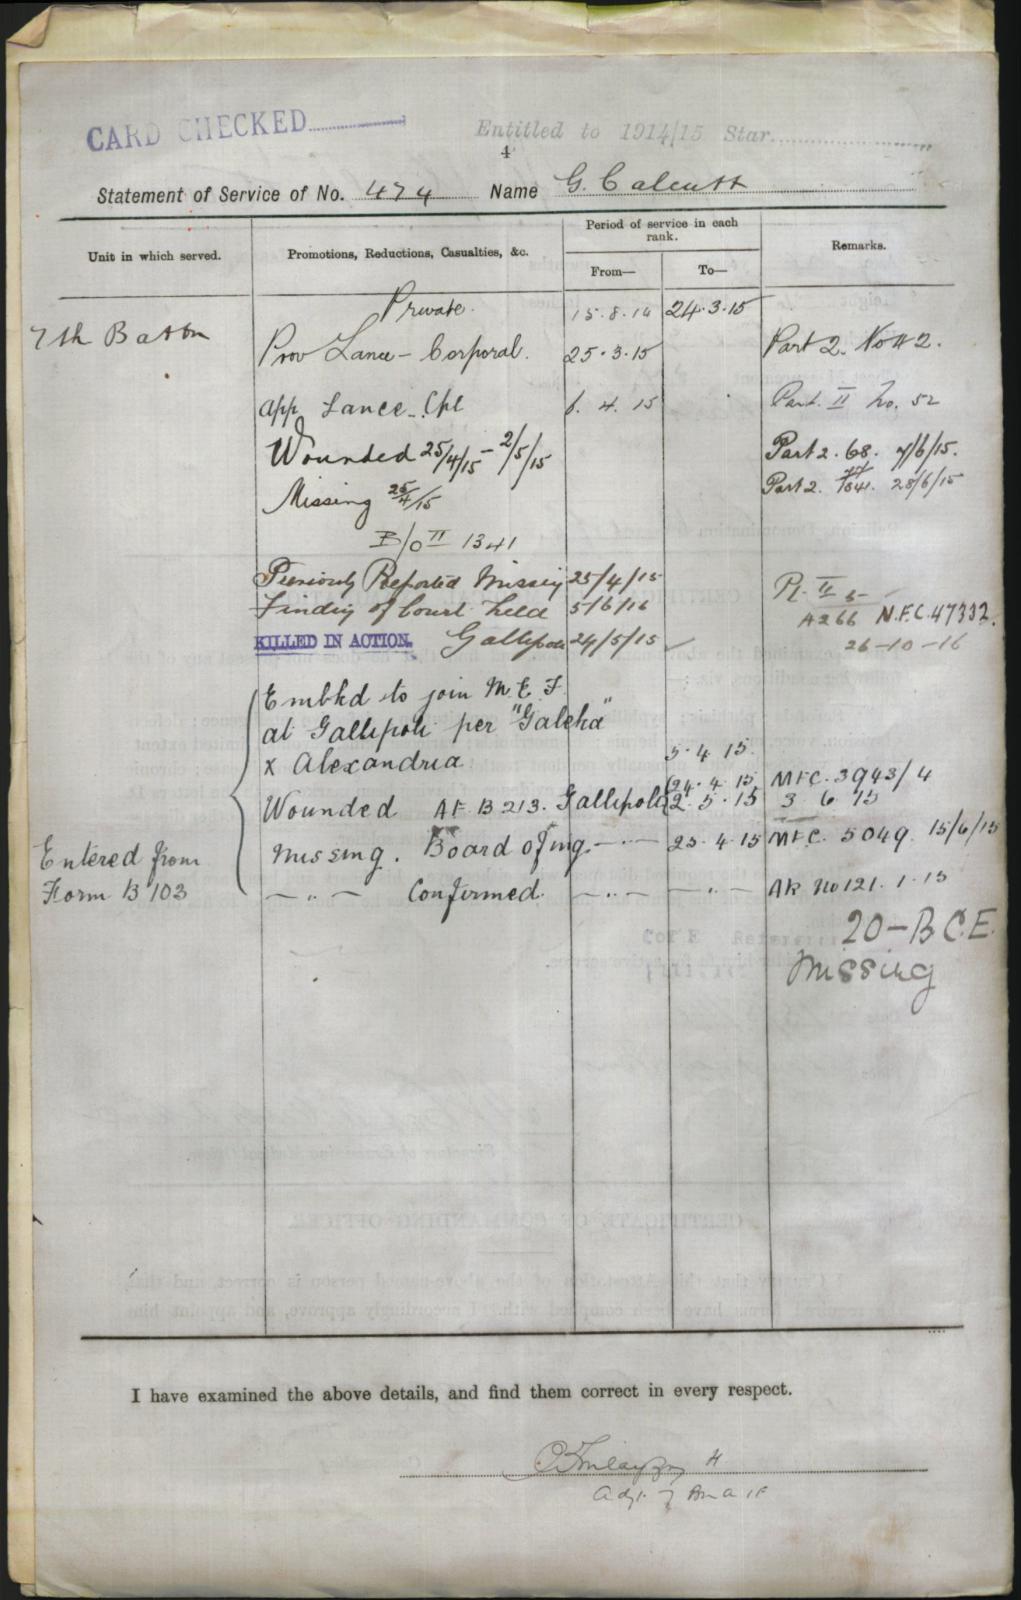 CARD CHECKED
Entitled to 1914/15 Star
4
Statement of Service of No. 474 Name G. Calcutt
Unit in which served.
Promotions, Reductions, Casualties, &c.
Period of service in each rank.
From—
To—
Remarks.
Private 15.8.14 24.3.15
7th Battn
Prov Lance-Corporal. 25.3.15 Part 2.
app Lance Cpl 4. 15 Part II No. 52
Wounded 25/4/15 - 2/5/15 Part 2. 68. 7/6/15.
Missing 25/4/15 Part 2. 28/6/15
B/O II 1341
Previously Reported Missing 25/4/15 Pt. II
Finding of Court held 5/6/16 A266 N.F.C. 47332.
KILLED IN ACTION. Gallipoli 24/5/15 26-10-16
Embkd to join M E F
at Gallipoli per "Galeka"
x Alexandria 5.4.15.
24.4.15 MFC. 3943/4
Wounded AF. B 213. Gallipoli 2.5.15 3 6 15
Missing. Board of Inq. — " — 25.4.15 MFC. 5049. 15/6/15
Entered from
Form B 103
— " — Confirmed. — " — — " — AR No 121. 1.15
20-B.C.E.
Missing
I have examined the above details, and find them correct in every respect.
Adjt 7 Bn A I F